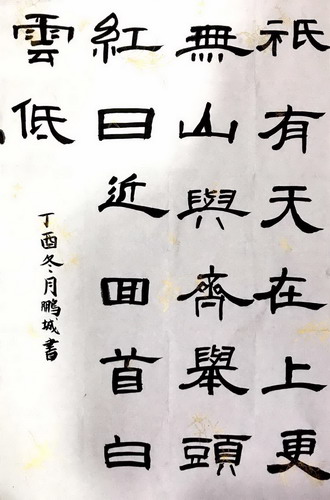 祇有天在上更
無山與齊舉頭
紅日近回首白
雲低
丁酉冬月鹏城書